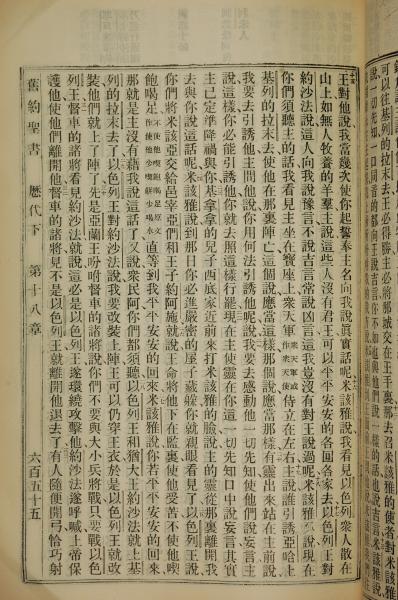 可以往基列的拉末去王必得勝主必將那城交在王手裏那去召米該雅的使者對米該雅
說一切先知一口同音的都向王說吉言你不如也與他們說一樣的話也說吉言米該雅說
王對他說我當幾次使你起誓奉主名向我說眞實話呢米該雅說我看見以色列衆人散在
山上如無人牧養的羊羣主說這些人沒有君王可以平平安安的各回各家去以色列王對
約沙法說這人向我說豫言不說吉言常說凶言這我豈沒有對王說過呢米該雅說現在
你們須聽主的話我看見主坐在寶座上衆天軍衆天軍或作衆天使侍立在左右主說誰引誘亞哈上
基列的拉末去使他在那裏陣亡這個說應當這樣那個說應當那樣有靈出來站在主前說
我要去引誘他主問他說你用何法引誘他呢說我要去感動他一切先知使他們說妄言主
說這樣你必能引誘他你就去照這樣行罷現在主使靈在你這一切先知口中說妄言其實
主已定準降禍與你基拿拿的兒子西底家近前來打米該雅的臉說主的靈從那裏離開我
去與你說這話呢米該雅說到那日你必進嚴密的屋子藏躱你就親眼看見了以色列王說
你們將米該亞交給邑宰亞們和王子約阿施就說王命將他下在監裏使他受苦不使他喫
飽喝足不使他喫飽喝足原文作使他少喫餠少喝水直等到我平平安安的回來米該雅說你若平平安安的回來
那就是主沒有藉我說這話了又說衆民阿你們都須聽以色列王和猶大王約沙法就上基
列的拉末去了以色列王對約沙法說我要改裝上陣王可以仍穿王衣於是以色列王就改
裝他們就上了陣了先是亞蘭王吩咐督車的諸將說你們不要與大小兵將戰只要戰以色
列王督車的諸將看見約沙法就說這必是以色列王遂環繞攻擊他約沙法遂呼喊上帝保
護他使他們離開他督車的諸將見不是以色列王就離開他退去了有人隨便開弓恰巧射
舊約聖書 歷代下 第十八章 六百五十五